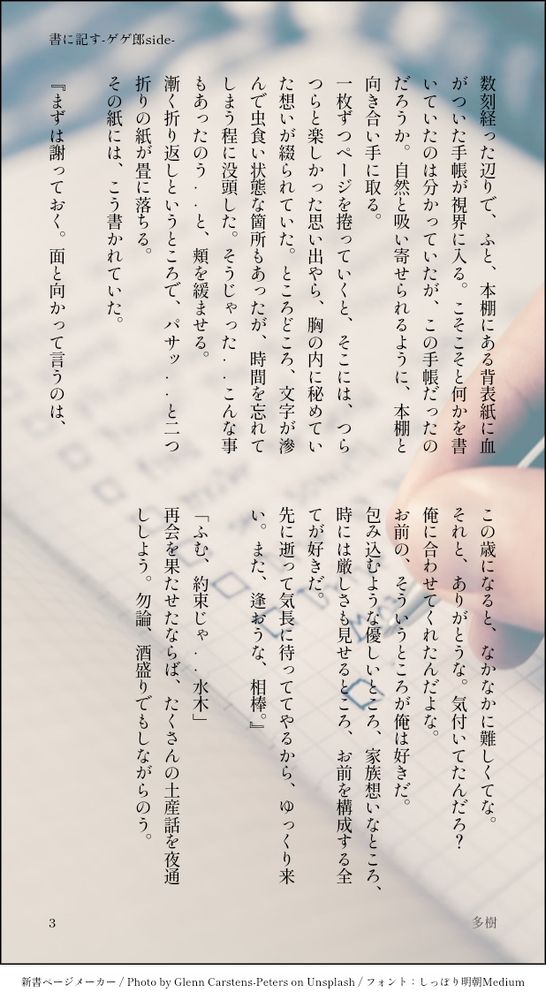 書に記す-ゲゲ郎side-
数刻経った辺りで、ふと、本棚にある背表紙に血
がついた手帳が視界に入る。こそこそと何かを書
いていたのは分かっていたが、この手帳だったの
だろうか。自然と吸い寄せられるように、本棚と
向き合い手に取る。
一枚ずつページを捲っていくと、そこには、つら
つらと楽しかった思い出やら、胸の内に秘めてい
た想いが綴られていた。ところどころ、文字が滲
んで虫食い状態な箇所もあったが、時間を忘れて
しまう程に没頭した。そうじゃった..こんな事
もあったのう..と、頬を緩ませる。
漸く折り返しというところで、パサッ.と二つ
折りの紙が畳に落ちる。
その紙には、こう書かれていた。
『まずは謝っておく。面と向かって言うのは、
この歳になると、なかなかに難しくてな。
それと、ありがとうな。気付いてたんだろ?
俺に合わせてくれたんだよな。
お前の、そういうところが俺は好きだ。
包み込むような優しいところ、家族想いなところ、
時には厳しさも見せるところ、お前を構成する全
てが好きだ。
先に逝って気長に待っててやるから、ゆっくり来
い。また、逢おうな、相棒。』
「ふむ、約束じゃ..水木」
再会を果たせたならば、たくさんの土産話を夜通
ししよう。勿論、酒盛りでもしながらのう。
3
多樹
新書ページメーカー / Photo by Glenn Carstens-Peters on Unsplash / フォント:しっぽり明朝Medium